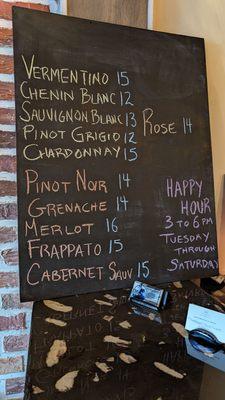 VERMENTINO 15
CHENIN BLANC 12
SAUVIGNON BLANC 13
ROSE 14
PINOT GRIGIO 12
CHARDONNAY 15
PINOT NOIR 14
GRENACHE 14
MERLOT 16
FRAPPATO 15
CABERNET SAUV 15
HAPPY
HOUR
3 TO 6 PM
TUESDAY
THROUGH
SATURDAY